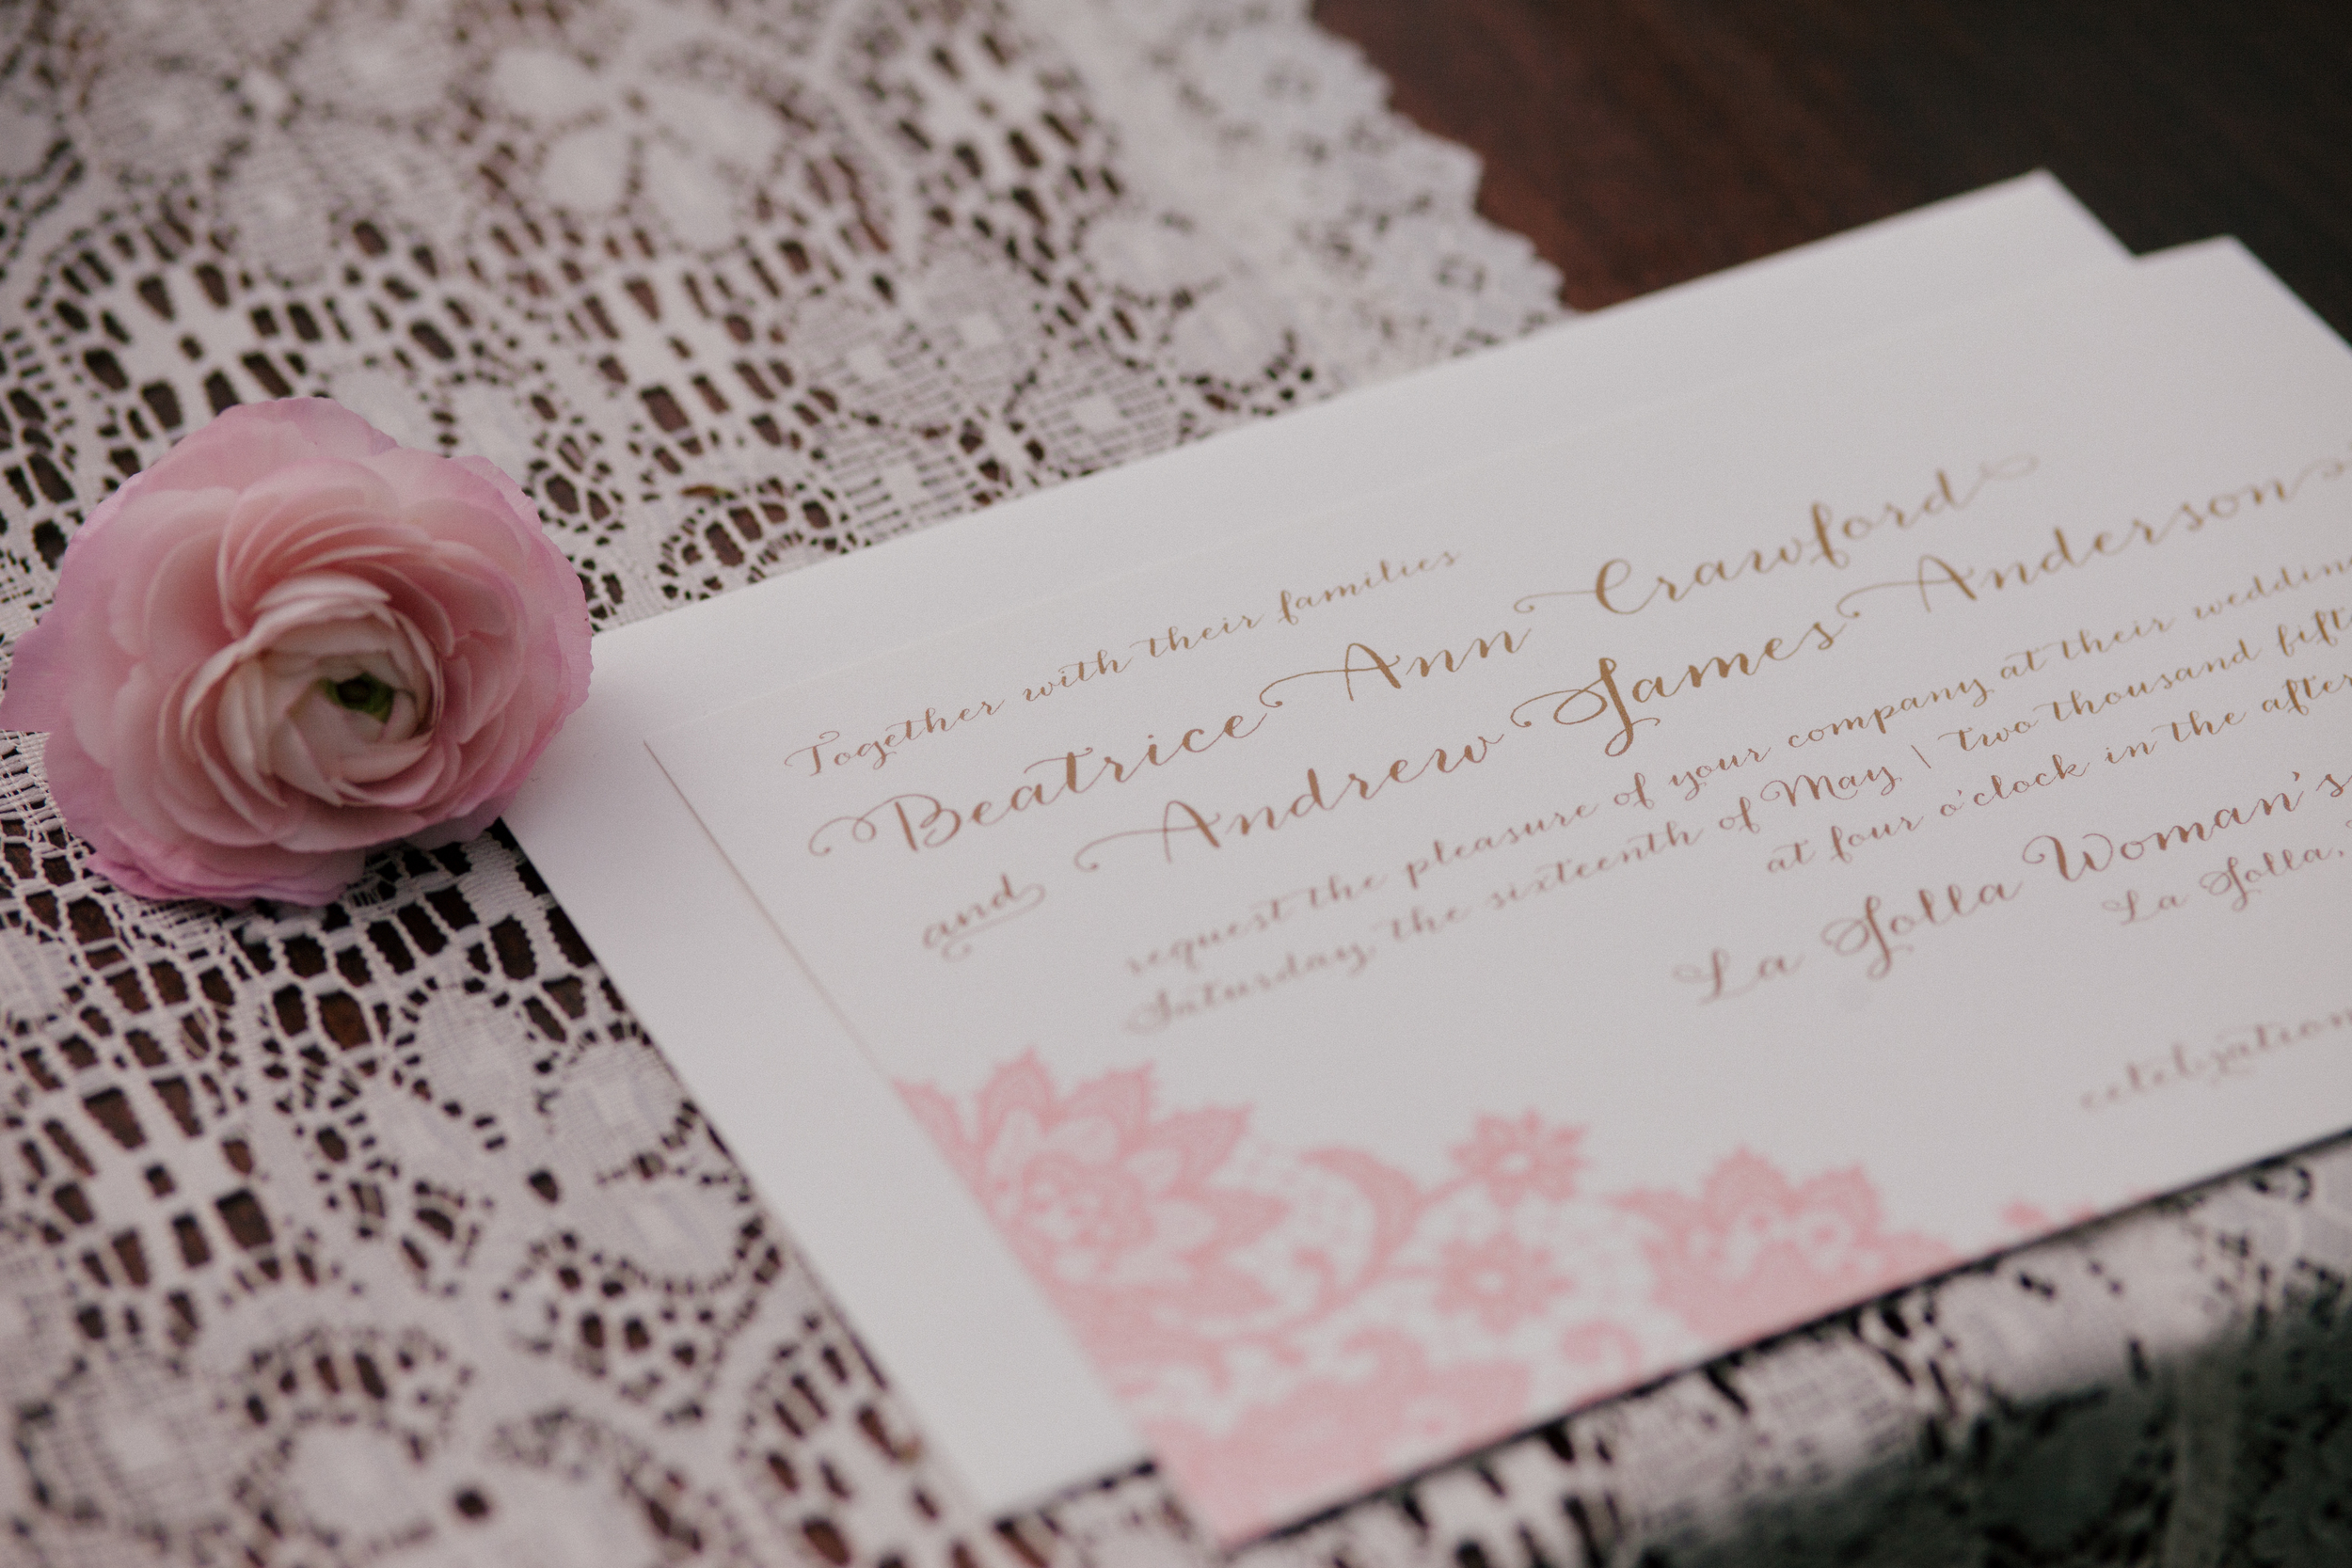 Together with their families
Beatrice Ann Crawford
and Andrew James Anderson
request the pleasure of your company at their weddin
Saturday the sixteenth of May | two thousand fift
at four o'clock in the after
La Jolla Woman's
La Jolla,